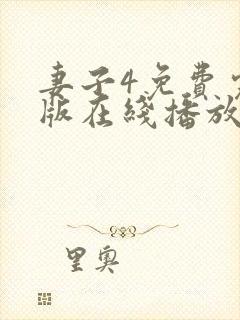 妻子4免费
版在綫播放
里奥